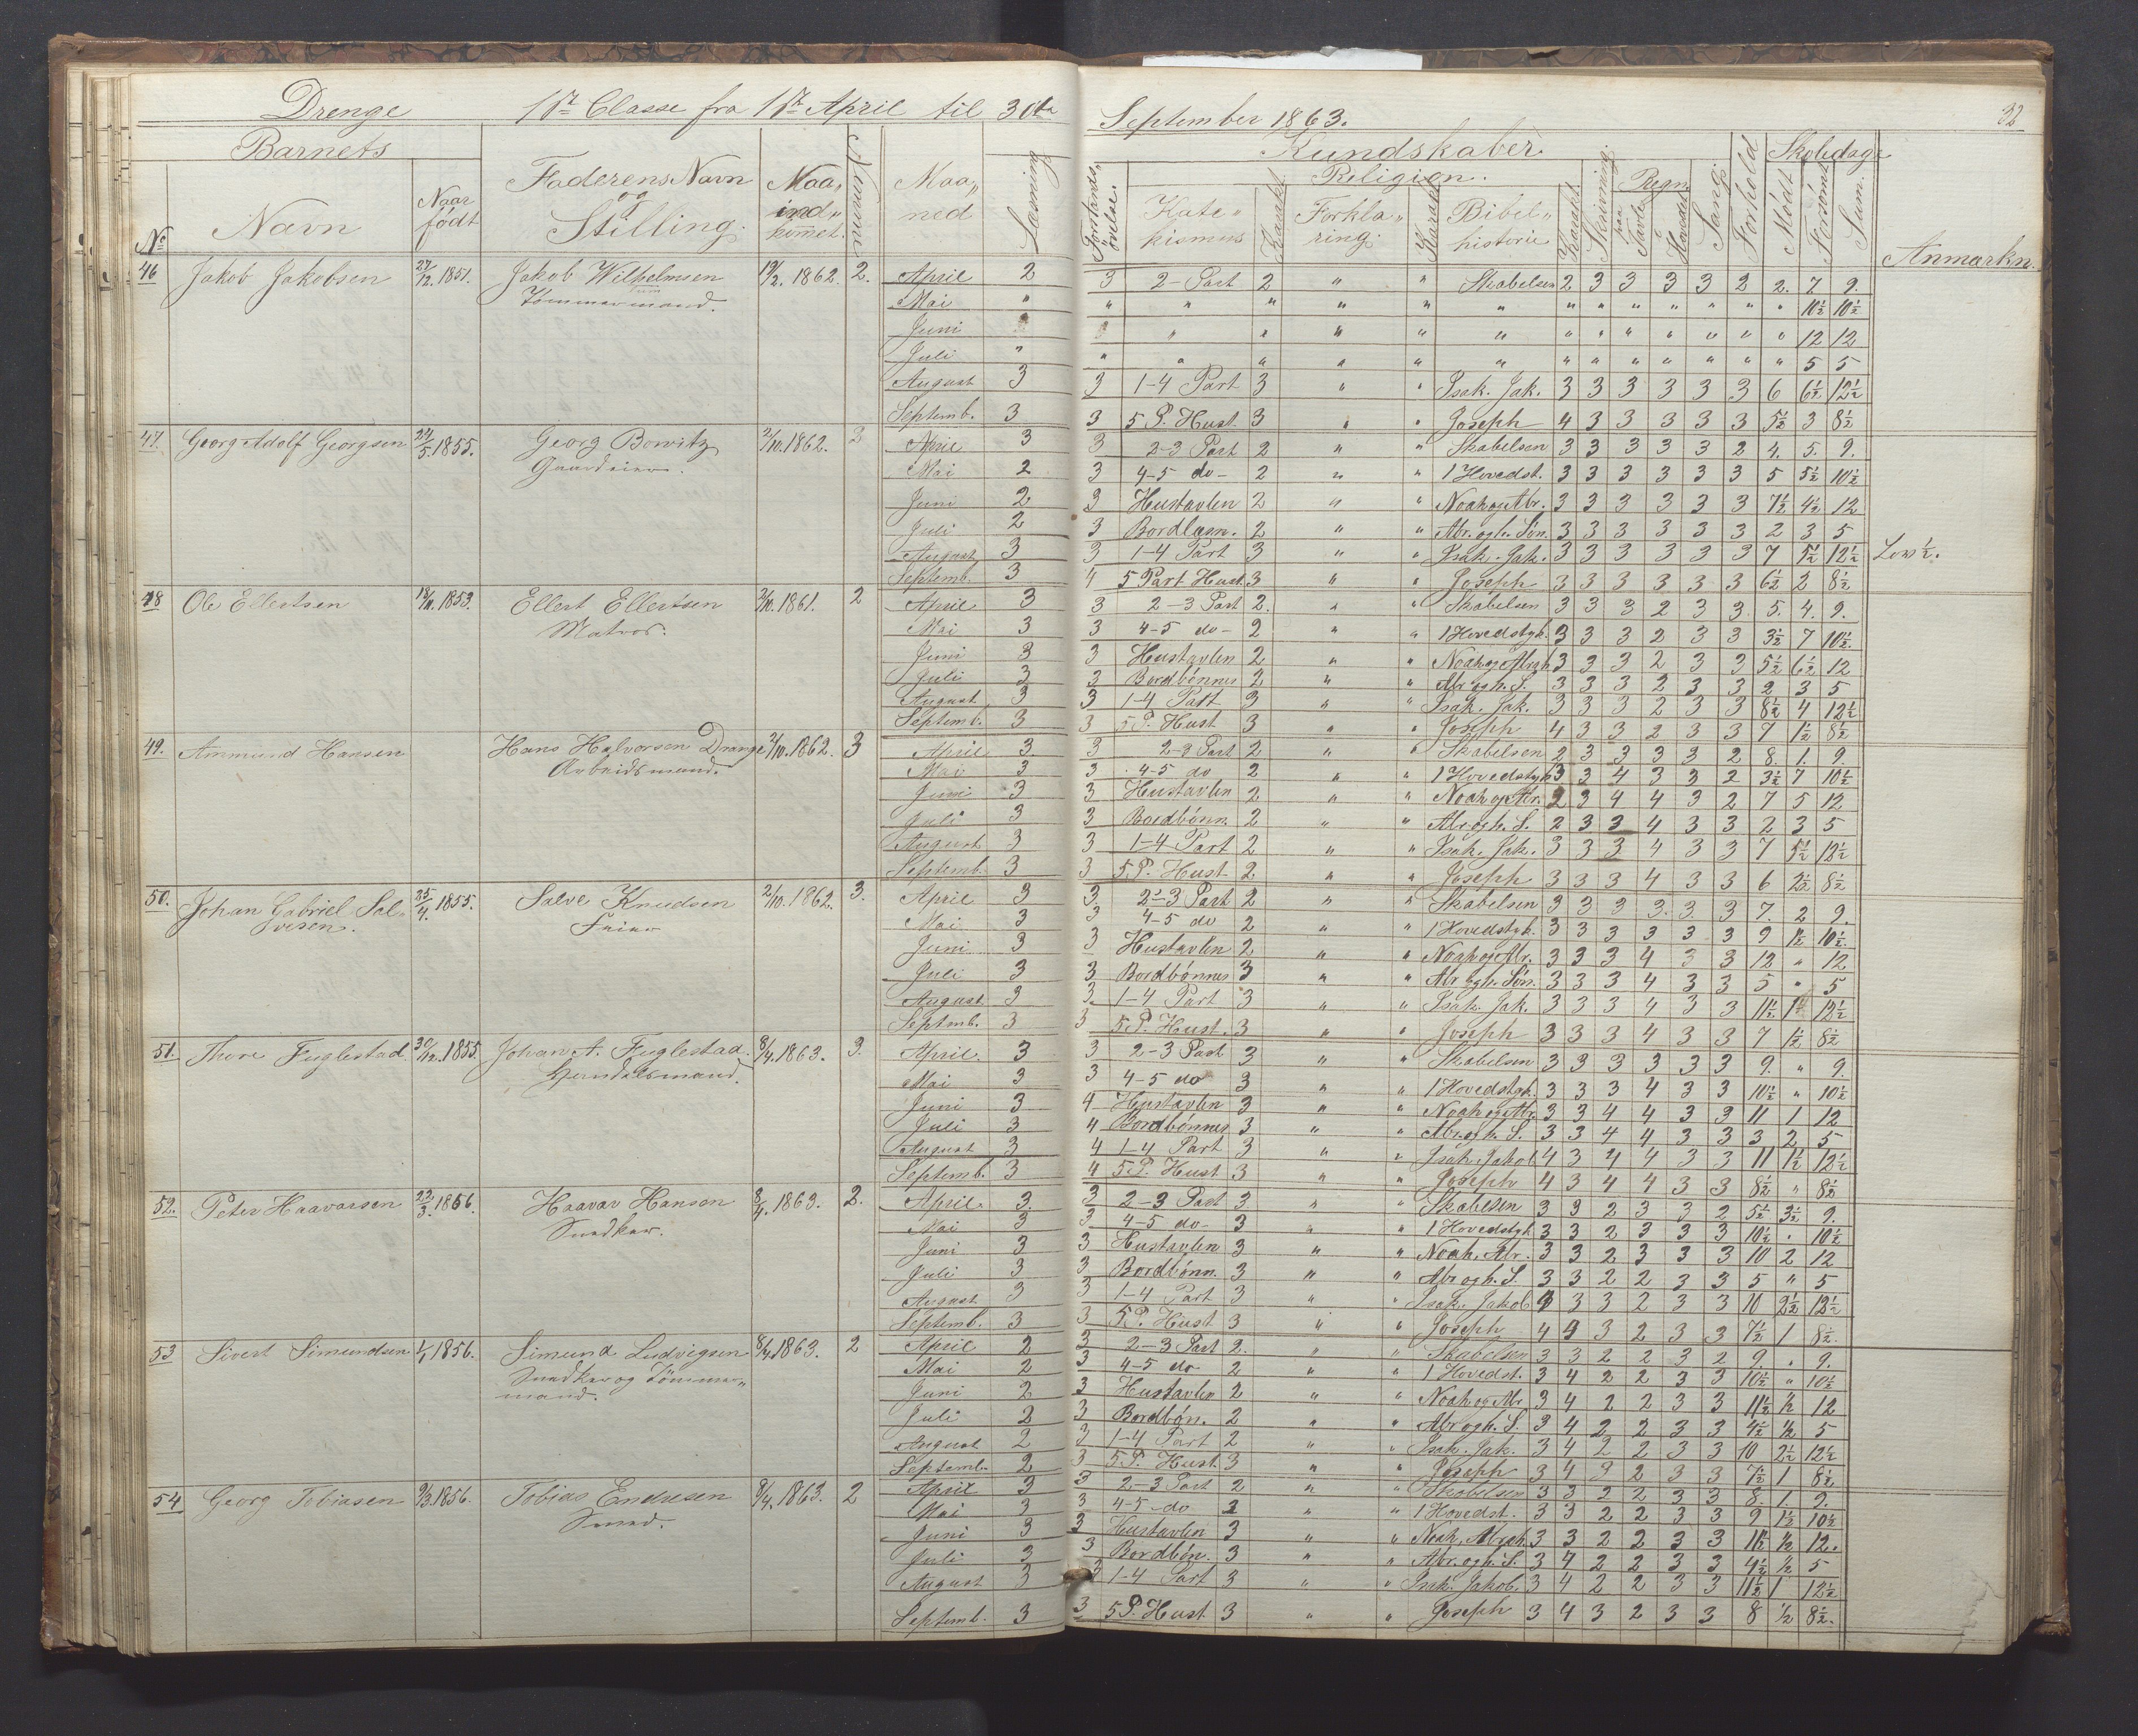 Drenge 1ste Classe fra 1ste April til 30te September 1863. 32
Barnets Kundskaber Skoledage
No Navn Naar født Faderens Navn og Stilling Maa indkommet Nummer Maaned Læsning Forstandsøvelse Religion. Katekismus Karakt Forklaring. Karakt Bibelhistorie Karakt. Skrivning. Regn. paa Tavle i Hovedet Sang. Forhold Mødt Forsømt Sum. Anmærkn.
46 Jakob Jakobsen 27/12 1851. Jakob Wilhelmsen 19/2. 1862. 2. April 2 3 2-Part 2 " " Skabelsen 2 3 3 3 3 2 2. 7 9.
Tømmermand. Mai " " " " " " " " " " " " " " 10½ 10½
Juni " " " " " " " " " " " " " " 12 12
Juli " " " " " " " " " " " " " " 5 5
August 3 3 1-4 Part 3 " " Isak. Jak. 3 3 3 3 3 3 6 6½ 12½
Septemb. 3 3 5 P. Hust 3 " " Joseph 4 3 3 3 3 3 5½ 3 8½
47. Georg Adolf Georgsen 24/5. 1855. Georg Bowitz 2/10. 1862. 2 April 3 3 2-3 Part 2 " " Skabelsen 3 3 3 3 3 2 4. 5. 9.
Gaardeier. Mai 2 3 4-5 do- 2 " " 1 Hovedst. 3 3 3 3 3 3 5 5½ 10½
Juni 2 3 Hustavlen 2 " " Noah og Abr. 3 3 3 3 3 3 7½ 4½ 12
Juli 2 3 Bordlæsn. 2 " " Abr. og h. Søn. 3 3 3 3 3 3 2 3 5
August 3 3 1-4 Part 3 " " Isak. Jak. 3 3 3 3 3 3 7 5½ 12½ Lov ½.
Septemb. 3 4 5 Part Hust. 3 " " Joseph 3 3 3 3 3 3 6½ 2 8½
48 Ole Ellertsen 18/11. 1853. Ellert Ellertsen 2/10. 1861. 2 April 3 3 2-3 Part 2. " " Skabelsen 3 3 3 2 3 3 5. 4. 9.
Matros. Mai 3 3 4-5 do- 2 " " 1 Hovedstyk. 3 3 3 2 3 3 3½ 7 10½
Juni 3 3 Hustavlen 2 " " Noah og Abrah 3 3 3 2 3 3 5½ 6½ 12
Juli 3 3 Bordbønnes 2 " " Abr og h. S. 3 3 3 2 3 3 2 3 5
August 3 3 1-4 Part 3 " " Isak. Jak. 3 3 3 2 3 3 8½ 4 12½
Septemb. 3 3 5 P. Hust 3 " " Joseph 4 3 3 2 3 3 7 1½ 8½
49. Anmund Hansen Hans Halvorsen Drange 2/10. 1862. 3 April 3 3 2-3 Part 2 " " Skabelsen 2 3 3 3 3 2 8. 1. 9.
Arbeidsmand. Mai 3 3 4-5 do 2 " " 1 Hovedstyk 3 3 4 3 3 2 3½ 7 10½
Juni 3 3 Hustavlen 2 " " Noah og Abr. 2 3 4 4 3 2 7 5 12
Juli 3 3 Bordbønn. 2 " " Abr og h. S. 2 3 3 4 3 3 2 3 5
August 3 3 1-4 Part 2 " " Isak. Jak. 3 3 3 4 3 3 7 5½ 12½
Septemb. 3 3 5 P. Hust 2 " " Joseph 3 3 3 4 3 3 6 2½ 8½
50. Johan Gabriel Sal- 25/4. 1855. Salve Knudsen 2/10. 1862. 3. April 3 3 2-3 Part 2 " " Skabelsen 3 3 3 3. 3. 3 7. 2 9.
vesen. Feier Mai 3 3 4-5 do 2 " " 1 Hovedstyk. 3 3 3 3 3 3 9 1½ 10½
Juni 3 3 Hustavlen 2 " " Noah og Abr. 3 3 3 4 3 3 12 " 12
Juli 3 3 Bordbønnes 3 " " Abr og h. Søn. 3 3 3 4 3 3 5 " 5
August 3 3 1-4 Part 3 " " Isak. Jak. 3 3 3 4 3 3 11½ 1 12½
Septmb. 3 3 5 P. Hust. 3 " " Joseph 3 3 3 4 3 3 7 1½ 8½
51. Thore Fuglestad 30/12. 1855. Johan A. Fuglestad. 8/4. 1863. 3. April. 3 3 2-3 Part 3 " " Skabelsen 3 3 3 3 3 3 9. " 9.
Handelsmand. Mai 3 3 4-5 do 3 " " 1 Hovedstyk. 3 3 3 4 3 3 10½ " 10½
Juni 3 4 Hustavlen 3 " " Noah og Abr. 3 3 4 4 3 3 11 1 12
Juli 3 4 Bordbønnes 3 " " Abr. og h. S. 3 3 4 4 3 3 3 2 5
August 3 4 1-4 Part 3 " " Isak. Jakob 4 3 4 4 3 3 11 1½ 12½
Septemb. 3 4 5 P. Hust 3 " " Joseph 4 3 4 4 3 3 8½ " 8½
52. Peter Haavarsen 22/3. 1856. Haavar Hansen 8/4. 1863. 2. April. 3. 3 2-3 Part 3. " " Skabelsen 3 3 2 3 3 2 5½ 3½ 9.
Snedker. Mai 3 3 4-5 do- 3 " " 1 Hovedstyk 3 3 2 3 3 3 10½ " 10½
Juni 3 3 Hustavlen 3 " " Noah. Abr. 3 3 2 3 3 3 10 2 12
Juli 3 3 Bordbønn. 3 " " Abr og h. S. 3 3 2 2 3 3 5 " 5
August 3 3 1-4 Part 3 " " Isak. Jakob 4 3 3 2 3 3 10 2½ 12½
Septemb. 3 3 5 P. Hust 3 " " Joseph 4 4 3 2 3 3 7½ 1 8½.
53 Sivert Simundsen 1/1 1856. Simund Ludvigsen 8/4. 1863. 2 April 2 3 2-3 Part 2. " " Skabelsen 3 3 2 2 3 2 9. " 9.
Snedker og Tømmer- Mai 2 3 4-5 do- 2 " " 1 Hovedst. 3 4 2 2 3 3 10½ " 10½
mand. Juni 2 3 Hustavlen 2 " " Noah og Abr 3 4 2 2 3 3 11½ ½ 12
Juli 2 3 Bordbøn. 2 " " Abr og h. S. 3 4 2 2 3 3 4½ ½ 5
August 2 3 1-4 Part 2 " " Isak. Jak. 3 4 2 2 3 3 10 2½ 12½
Septemb. 2 3 5 P. Hust. 3 " " Joseph 3 4 3 2 3 3 7½ 1 8½
54 Georg Tobiasen 9/3. 1856. Tobias Endresen 8/4. 1863. 2 April 3 3 2-3 Part 2 " " Skabelsen 3 3 2 2 3 3 8. 1. 9.
Smed. Mai 3 3 4-5 do 2 " " 1 Hovedst. 3 3 2 2 3 3 9 1½ 10½
Juni 3 3 Hustavlen 3 " " Noah, Abrah. 3 3 2 2 3 3 11½ ½ 12.
Juli 3 3 Bordbön. 3 " " Abr. og h. S. 3 4 2 2 3 3 4½ ½ 5
August 3 3 1-4 Part 3 " " Isak. Jakob. 3 4 2 2 3 3 11½ 1 12½
Septemb. 3 3 5 P. Hust 3 " " Joseph 3 4 3 2 3 3 8 ½ 8½.